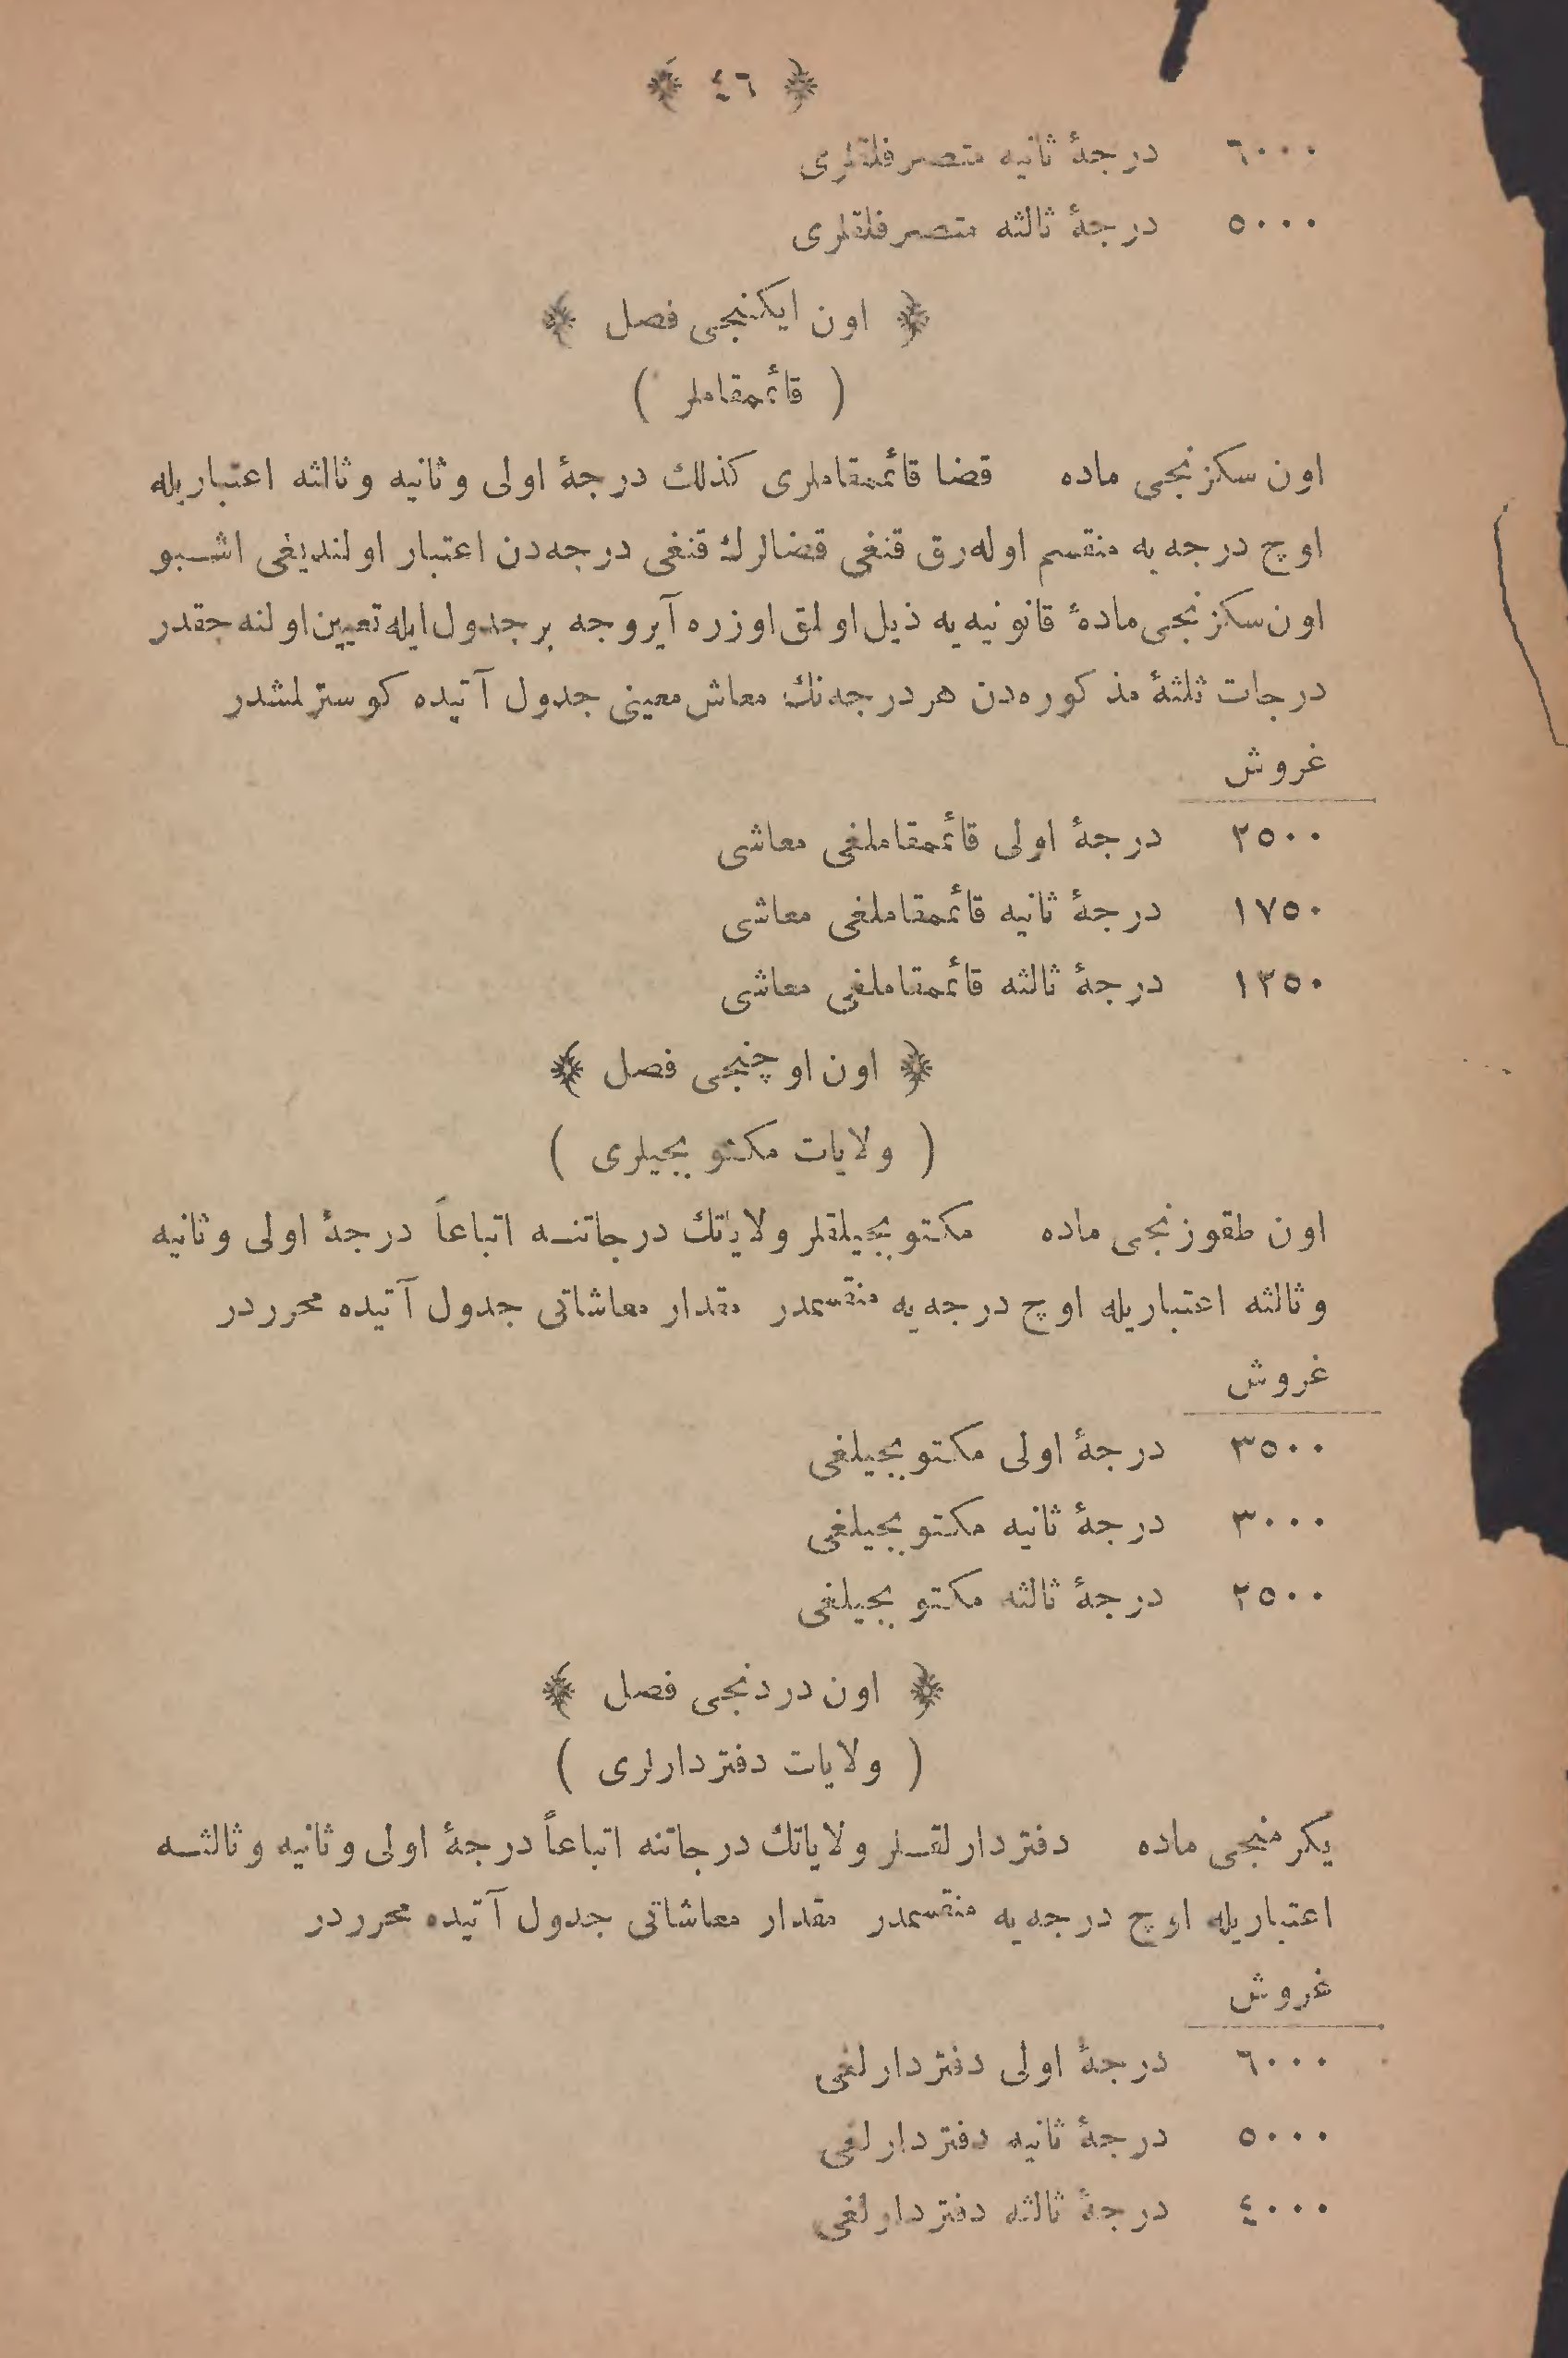 ﴿ ٤٦ ﴾
٦٠٠٠ درجهٔ ثانيه متصرفلقلرى
٥٠٠٠ درجهٔ ثالثه متصرفلقلرى
﴿ اون ايكنجى فصل ﴾
( قائممقاملر )
اون سكزنجى ماده قضا قائممقاملرى كذلك درجهٔ اولى و ثانيه و ثالثه اعتباريله
اوچ درجه‌يه منقسم اوله‌رق قنغى قضالرك قنغى درجه‌دن اعتبار اولنديغى اشبو
اون سكزنجى مادهٔ قانونيه‌يه ذيل اولمق اوزره آيروجه بر جدول ايله تعيين اولنه‌جقدر
درجات ثلثهٔ مذكوره‌دن هر درجه‌نك معاش معينى جدول آتيده كوسترلمشدر
غروش
٢٥٠٠ درجهٔ اولى قائممقاملغى معاشى
١٧٥٠ درجهٔ ثانيه قائممقاملغى معاشى
١٢٥٠ درجهٔ ثالثه قائممقاملغى معاشى
﴿ اون اوچنجى فصل ﴾
( ولايات مكتوبجيلرى )
اون طقوزنجى ماده مكتوبجيلقلر ولاياتك درجاتنه اتباعاً درجهٔ اولى و ثانيه
و ثالثه اعتباريله اوچ درجه‌يه منقسمدر مقدار معاشاتى جدول آتيده محرردر
غروش
٣٥٠٠ درجهٔ اولى مكتوبجيلغى
٣٠٠٠ درجهٔ ثانيه مكتوبجيلغى
٢٥٠٠ درجهٔ ثالثه مكتوبجيلغى
﴿ اون دردنجى فصل ﴾
( ولايات دفتردارلرى )
يكرمنجى ماده دفتردارلقلر ولاياتك درجاتنه اتباعاً درجهٔ اولى و ثانيه و ثالثه
اعتباريله اوچ درجه‌يه منقسمدر مقدار معاشاتى جدول آتيده محرردر
غروش
٦٠٠٠ درجهٔ اولى دفتردارلغى
٥٠٠٠ درجهٔ ثانيه دفتردارلغى
٤٠٠٠ درجهٔ ثالثه دفتردارلغى